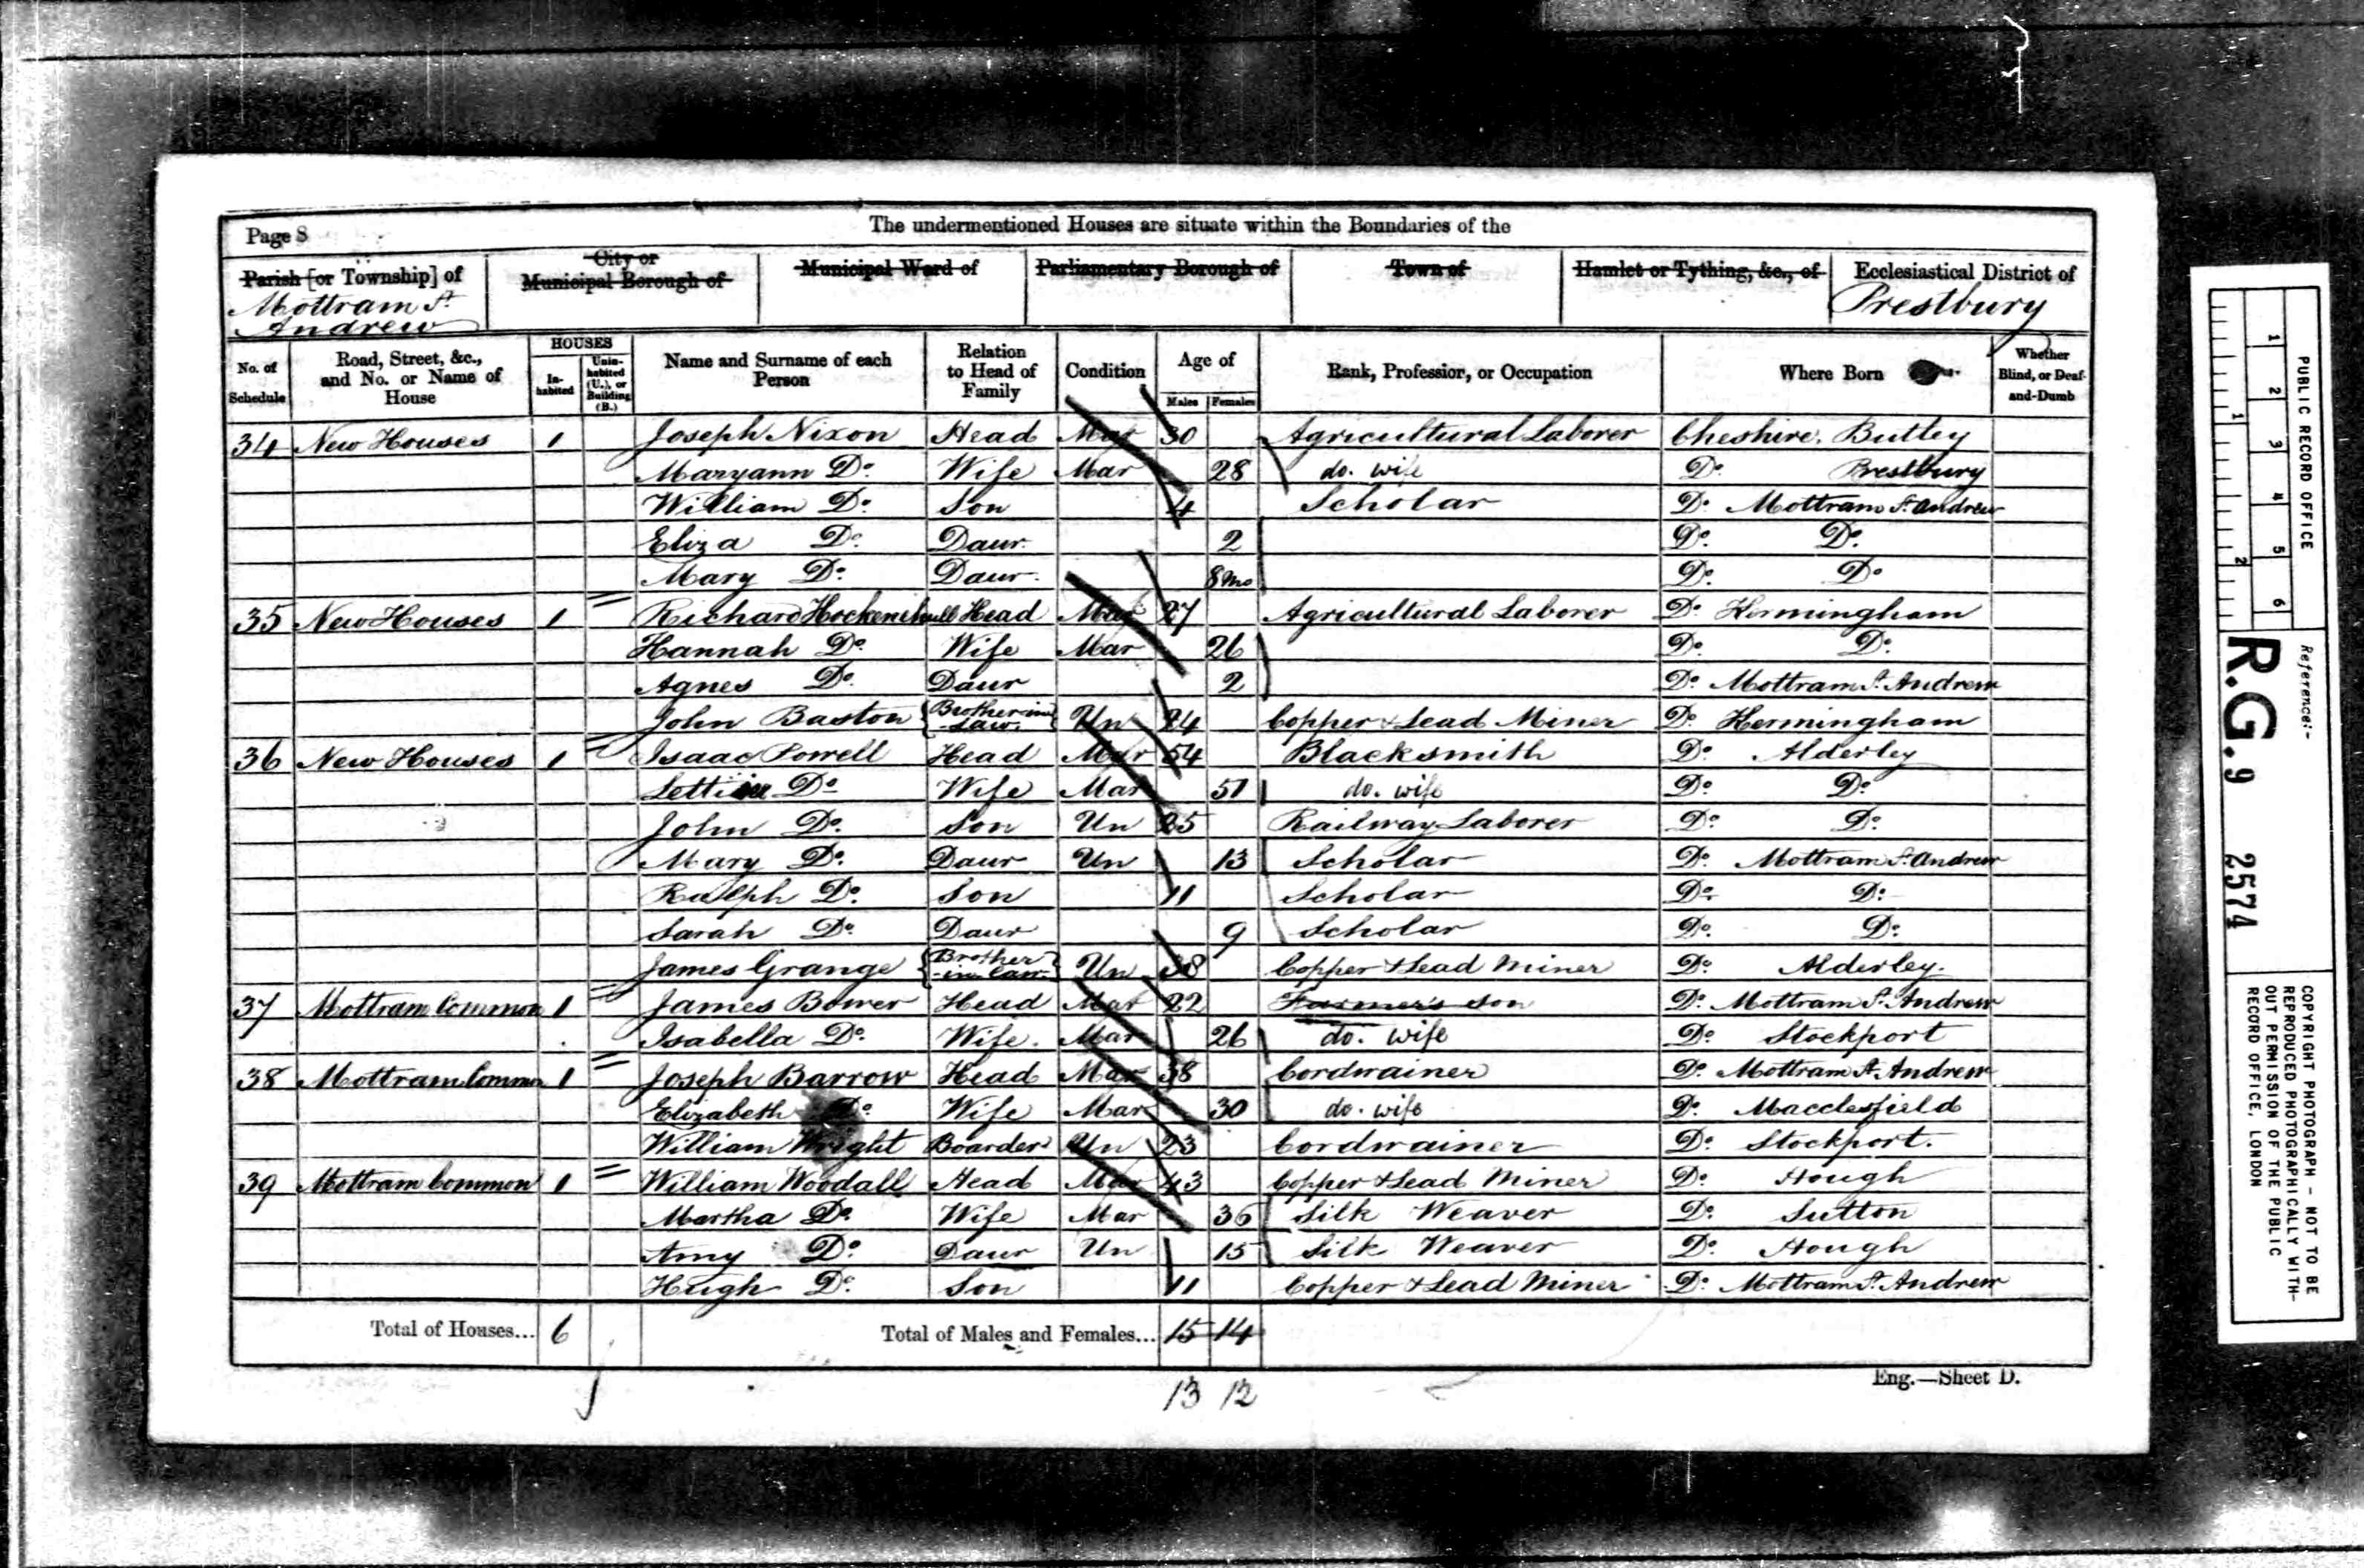 Page 8
The undermentioned Houses are situate within the Boundaries of the
Parish [or Township] of
Mottram St. Andrew
City or Municipal Borough of
Municipal Ward of
Parliamentary Borough of
Town of
Hamlet or Tything, &c., of
Ecclesiastical District of
Prestbury
No. of Schedule
Road, Street, &c., and No. or Name of House
HOUSES
In-habited
Unin-habited (U.), or Building (B.)
Name and Surname of each Person
Relation to Head of Family
Condition
Age of
Males
Females
Rank, Profession, or Occupation
Where Born
Whether Blind, or Deaf-and-Dumb
34 New Houses 1 Joseph Nixon Head Mar 30 Agricultural Laborer Cheshire, Butley
Maryann Do. Wife Mar 28 do. wife Do. Prestbury
William Do. Son 4 Scholar Do. Mottram St. Andrew
Eliza Do. Daur. 2 Do. Do.
Mary Do. Daur. 8 mo Do. Do.
35 New Houses 1 Richard Hockenhull Head Mar 27 Agricultural Laborer Do. Hermingham
Hannah Do. Wife Mar 26 Do. Do.
Agnes Do. Daur 2 Do. Mottram St. Andrew
John Baston Brother in Law. Un 24 Copper & Lead Miner Do. Hermingham
36 New Houses 1 Isaac Powell Head Mar 54 Blacksmith Do. Alderley
Do. Wife Mar 51 do. wife Do. Do.
John Do. Son Un 25 Railway Laborer Do. Do.
Mary Do. Daur Un 13 Scholar Do. Mottram St. Andrew
Ralph Do. Son 11 Scholar Do. Do.
Sarah Do. Daur 9 Scholar Do. Do.
James Grange Brother in Law Un 38 Copper & Lead Miner Do. Alderley.
37 Mottram Common 1 James Bower Head Mar 22 Farmer's Son Do. Mottram St. Andrew
Isabella Do. Wife. Mar 26 do. wife Do. Stockport
38 Mottram Common 1 Joseph Barrow Head Mar 38 Cordwainer Do. Mottram St. Andrew
Elizabeth Do. Wife Mar 30 do. wife Do. Macclesfield
William Wright Boarder Un 23 Cordwainer Do. Stockport.
39 Mottram Common 1 William Woodall Head Mar 43 Copper & Lead Miner Do. Hough
Martha Do. Wife Mar 36 Silk Weaver Do. Sutton
Amy Do. Daur Un 15 Silk Weaver Do. Hough
Hugh Do. Son 11 Copper & Lead Miner Do. Mottram St. Andrew
Total of Houses... 6
Total of Males and Females... 15 14
13 12
Eng.—Sheet D.
1 2 3 4 5 6
1 2
PUBLIC RECORD OFFICE
Reference:-
R.G. 9 2574
COPYRIGHT PHOTOGRAPH - NOT TO BE
REPRODUCED PHOTOGRAPHICALLY WITH-
OUT PERMISSION OF THE PUBLIC
RECORD OFFICE, LONDON